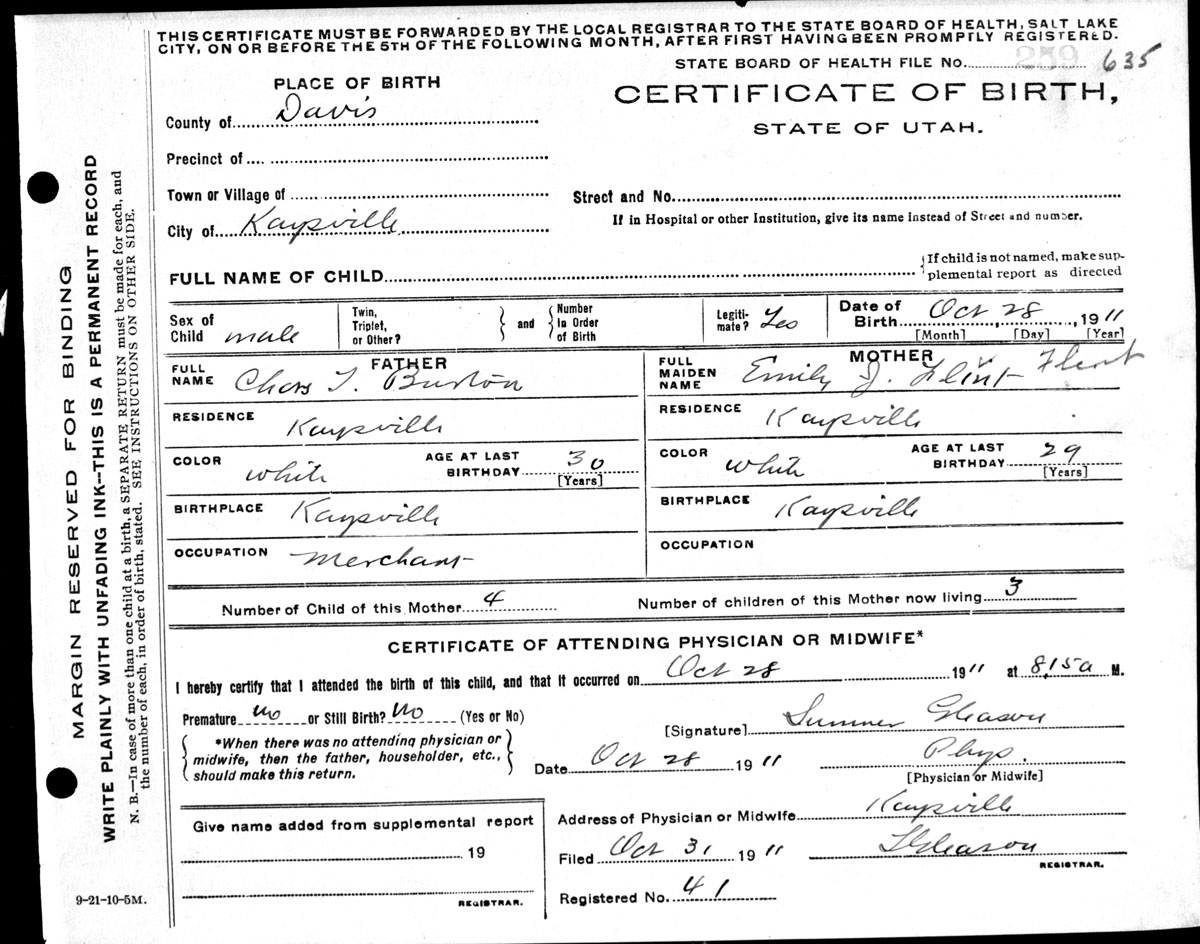 THIS CERTIFICATE MUST BE FORWARDED BY THE LOCAL REGISTRAR TO THE STATE BOARD OF HEALTH, SALT LAKE
CITY, ON OR BEFORE THE 5TH OF THE FOLLOWING MONTH, AFTER FIRST HAVING BEEN PROMPTLY REGISTERED.
STATE BOARD OF HEALTH FILE NO. 259 635
PLACE OF BIRTH
CERTIFICATE OF BIRTH,
STATE OF UTAH.
County of Davis
Precinct of
Town or Village of
Street and No.
City of Kaysville
If in Hospital or other Institution, give its name instead of Street and number.
FULL NAME OF CHILD
{If child is not named, make sup-
plemental report as directed
Sex of Child male
Twin, Triplet, or Other?
} and {
Number in Order of Birth
Legiti-mate? Yes
Date of Birth Oct 28, 1911
[Month] [Day] [Year]
FATHER
FULL NAME Chas T. Burton
MOTHER
FULL MAIDEN NAME Emily J. Flint Flint
RESIDENCE Kaysville
RESIDENCE Kaysville
COLOR white
AGE AT LAST BIRTHDAY 30
[Years]
COLOR white
AGE AT LAST BIRTHDAY 29
[Years]
BIRTHPLACE Kaysville
BIRTHPLACE Kaysville
OCCUPATION Merchant
OCCUPATION
Number of Child of this Mother 4
Number of children of this Mother now living 3
CERTIFICATE OF ATTENDING PHYSICIAN OR MIDWIFE*
I hereby certify that I attended the birth of this child, and that it occurred on Oct 28 1911 at 8,15a M.
Premature no or Still Birth? No (Yes or No)
[Signature] Sumner Gleason
{*When there was no attending physician or
midwife, then the father, householder, etc.,
should make this return.}
Date Oct 28 1911
Phys.
[Physician or Midwife]
Give name added from supplemental report
19
REGISTRAR.
Address of Physician or Midwife Kaysville
Filed Oct 31 1911
SGleason
REGISTRAR.
Registered No. 41
MARGIN RESERVED FOR BINDING
WRITE PLAINLY WITH UNFADING INK--THIS IS A PERMANENT RECORD
N. B.—In case of more than one child at a birth, a SEPARATE RETURN must be made for each, and
the number of each, in order of birth, stated. SEE INSTRUCTIONS ON OTHER SIDE.
9-21-10-5M.